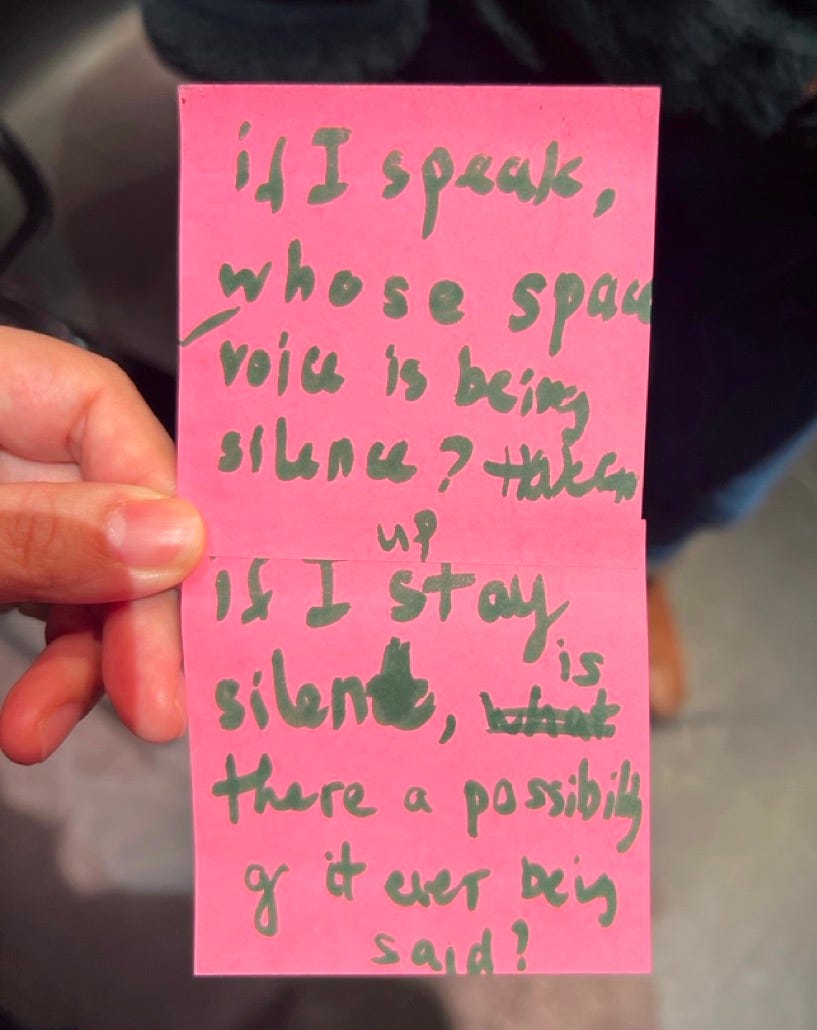 if I speak,
whose space
voice is being
silence? taken
up
if I stay
silent, is
what
there a possibility
of it ever being
said?